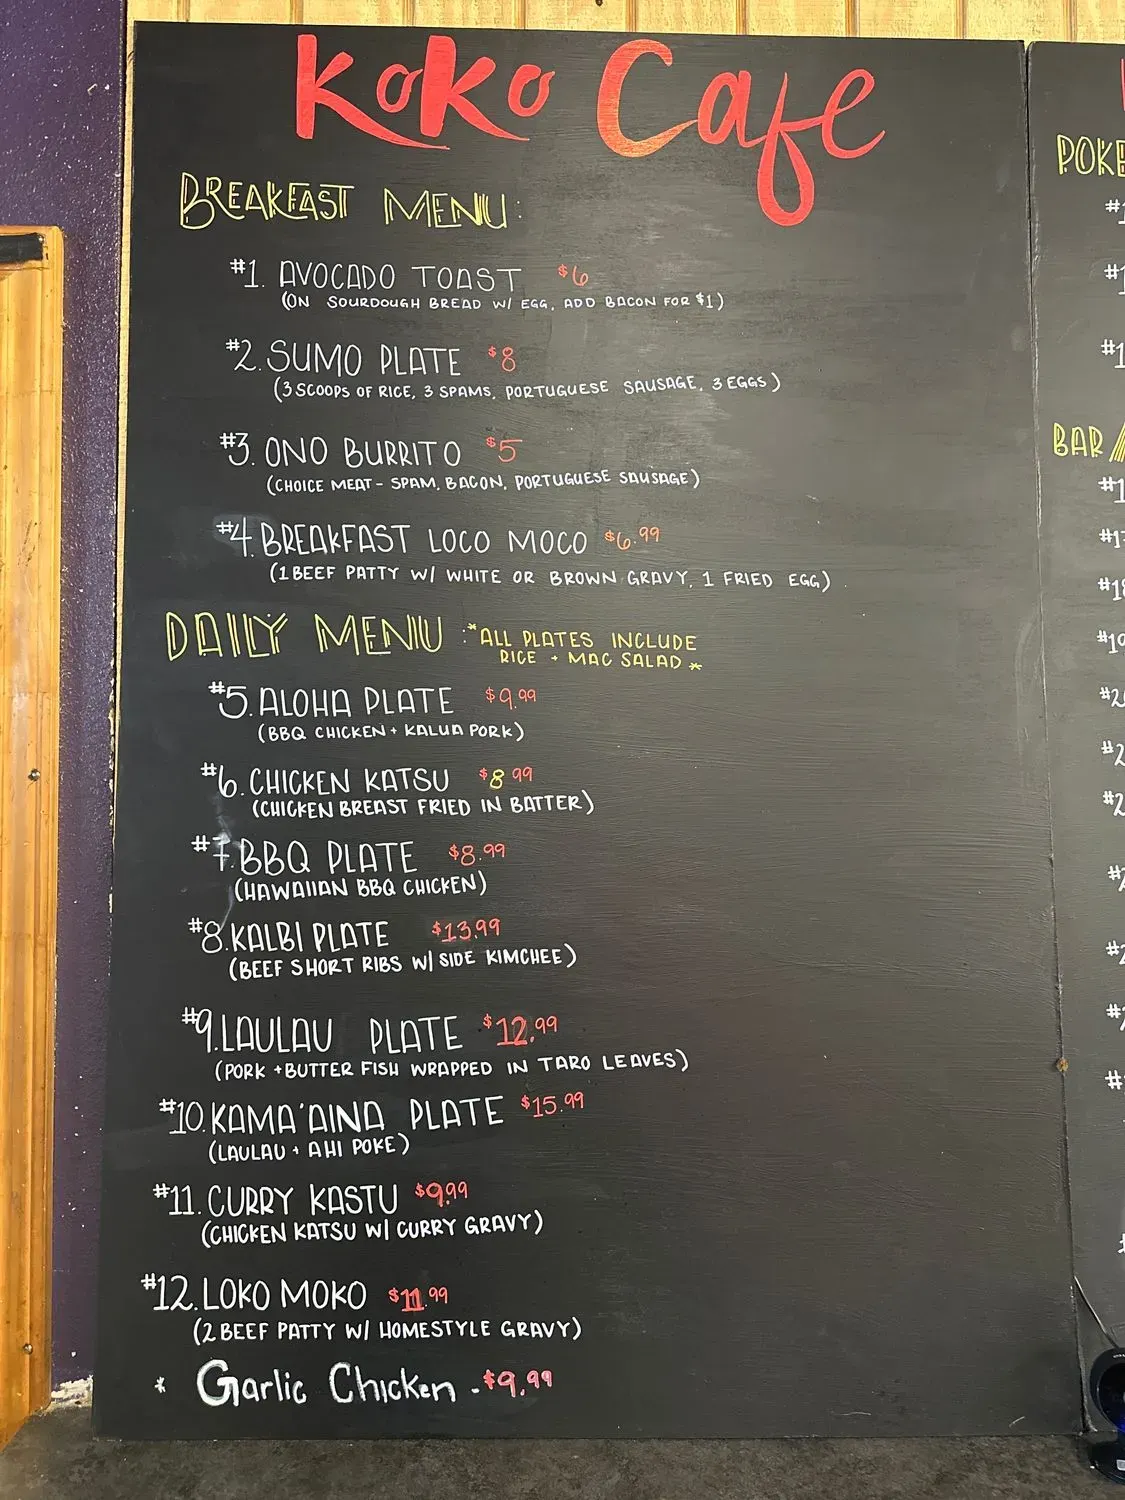 KoKo Cafe
BREAKFAST MENU:
#1. AVOCADO TOAST $6
(ON SOURDOUGH BREAD W/ EGG, ADD BACON FOR $1)
#2. SUMO PLATE $8
(3 SCOOPS OF RICE, 3 SPAMS, PORTUGUESE SAUSAGE, 3 EGGS)
#3. ONO BURRITO $5
(CHOICE MEAT - SPAM, BACON, PORTUGUESE SAUSAGE)
#4. BREAKFAST LOCO MOCO $6.99
(1 BEEF PATTY W/ WHITE OR BROWN GRAVY, 1 FRIED EGG)
DAILY MENU : *ALL PLATES INCLUDE
RICE + MAC SALAD *
#5. ALOHA PLATE $9.99
(BBQ CHICKEN + KALUA PORK)
#6. CHICKEN KATSU $8.99
(CHICKEN BREAST FRIED IN BATTER)
#7. BBQ PLATE $8.99
(HAWAIIAN BBQ CHICKEN)
#8. KALBI PLATE $13.99
(BEEF SHORT RIBS W/ SIDE KIMCHEE)
#9. LAULAU PLATE $12.99
(PORK + BUTTER FISH WRAPPED IN TARO LEAVES)
#10. KAMA'AINA PLATE $15.99
(LAULAU + AHI POKE)
#11. CURRY KASTU $9.99
(CHICKEN KATSU W/ CURRY GRAVY)
#12. LOKO MOKO $11.99
(2 BEEF PATTY W/ HOMESTYLE GRAVY)
* Garlic Chicken - $9.99
POKE
BAR